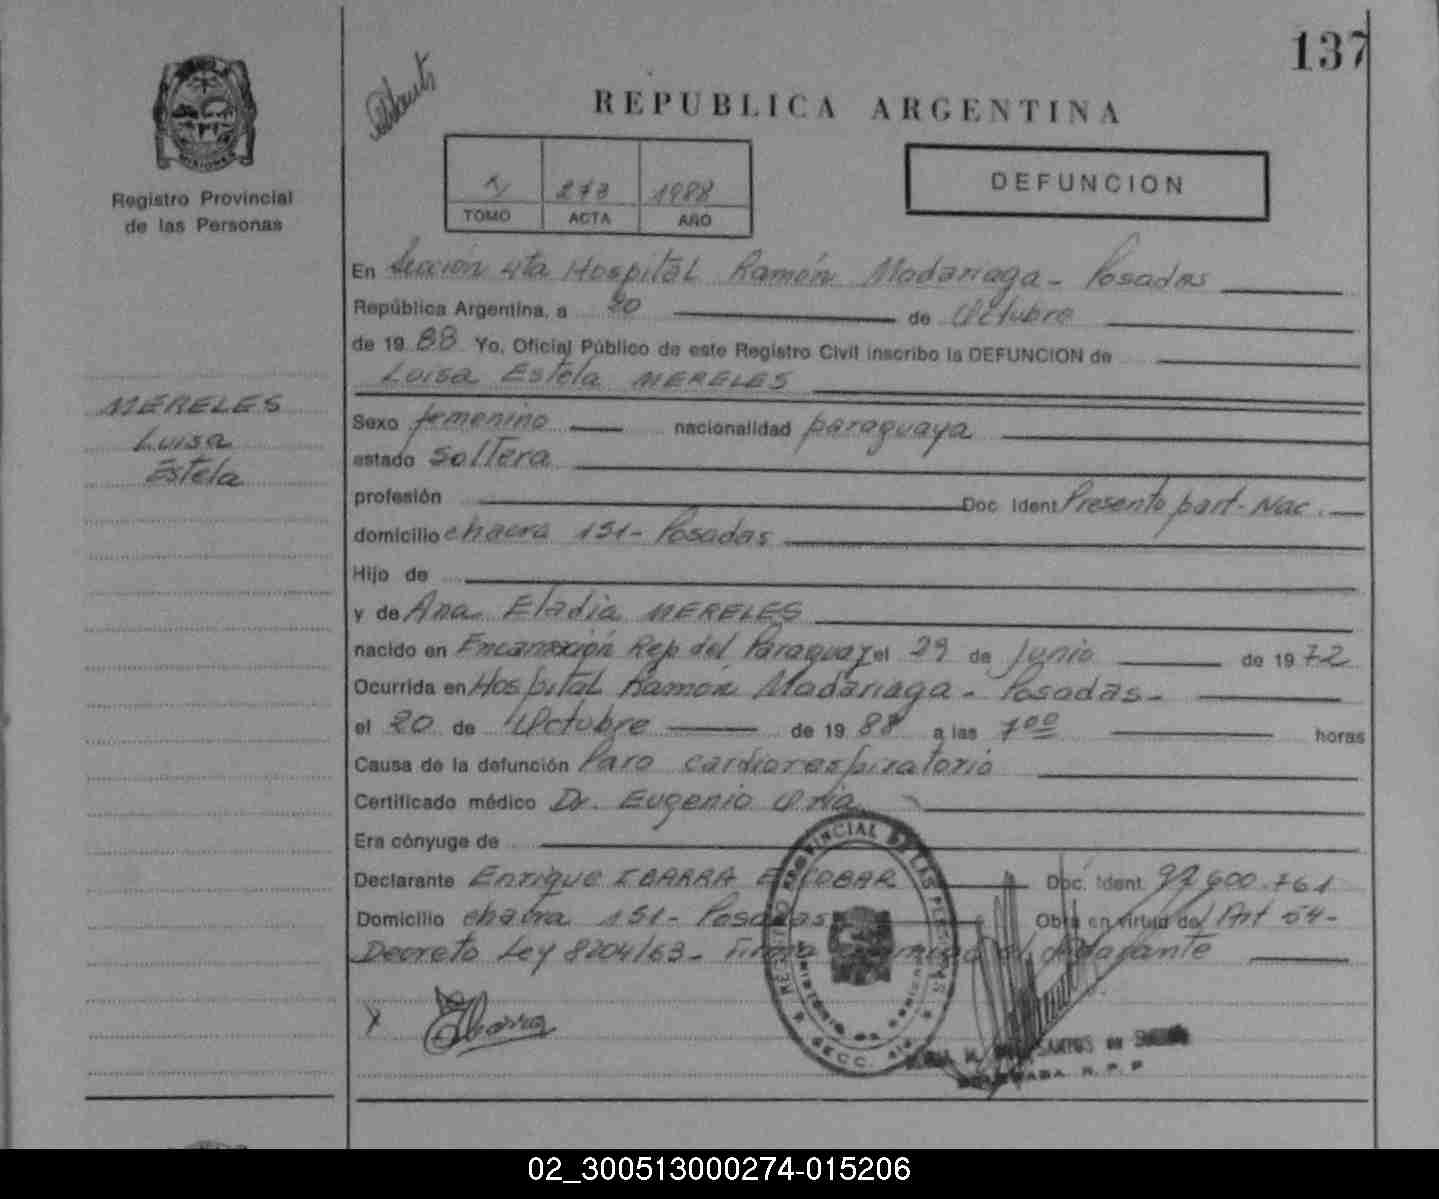 137
REPUBLICA ARGENTINA
MISIONES
Registro Provincial
de las Personas
273 1988
TOMO ACTA AÑO
DEFUNCION
En Sección 4ta Hospital Ramón Madariaga - Posadas
República Argentina, a 20 de Octubre
de 19 88 Yo, Oficial Público de este Registro Civil inscribo la DEFUNCION de
Luisa Estela MERELES
MERELES
Luisa
Estela
Sexo femenino nacionalidad paraguaya
estado soltera
profesión Doc. Ident. Presento part. Nac.
domicilio chacra 151 - Posadas
Hijo de
y de Ana Eladia MERELES
nacido en Encarnación Rep del Paraguay el 29 de Junio de 19 72
Ocurrida en Hospital Ramón Madariaga - Posadas -
el 20 de Octubre de 19 88 a las 7 00 horas
Causa de la defunción Paro cardiorespiratorio
Certificado médico Dr. Eugenio Oria
Era cónyuge de
Declarante Enrique IBARRA ESCOBAR Doc. Ident. 92.600.761
Domicilio chacra 151 - Posadas Obra en virtud del Art 64 -
Decreto Ley 8204/63 - Firma declarante
REGISTRO PROVINCIAL DE LAS PERSONAS
SECC. 4ta
EIbarra
SANTOS de
R. P. P
02_300513000274-015206